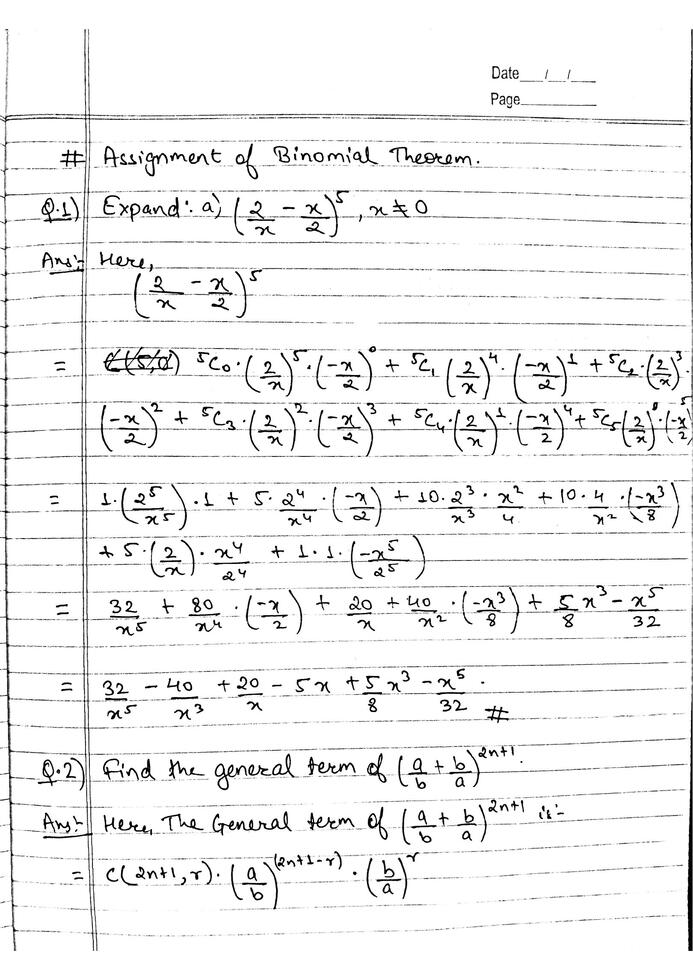 Date__/__/__
Page______
# Assignment of Binomial Theorem.
Q.1) Expand: a) (2/x - x/2)^5, x ≠ 0
Ans:- Here,
(2/x - x/2)^5
= ⁵C₀·(2/x)^5·(-x/2)^0 + ⁵C₁(2/x)^4·(-x/2)^1 + ⁵C₂·(2/x)^3·
(-x/2)^2 + ⁵C₃·(2/x)^2·(-x/2)^3 + ⁵C₄·(2/x)^1·(-x/2)^4 + ⁵C₅(2/x)^0·(-x/2)^5
= 1·(2^5/x^5)·1 + 5·2^4/x^4·(-x/2) + 10·2^3/x^3·x^2/4 + 10·4/x^2·(-x^3/8)
+ 5·(2/x)·x^4/2^4 + 1·1·(-x^5/2^5)
= 32/x^5 + 80/x^4·(-x/2) + 20/x + 40/x^2·(-x^3/8) + 5/8 x^3 - x^5/32
= 32/x^5 - 40/x^3 + 20/x - 5x + 5/8 x^3 - x^5/32. #
Q.2) Find the general term of (a/b + b/a)^2n+1.
Ans:- Here, The General term of (a/b + b/a)^2n+1 is:-
= C(2n+1, r)·(a/b)^(2n+1-r)·(b/a)^r